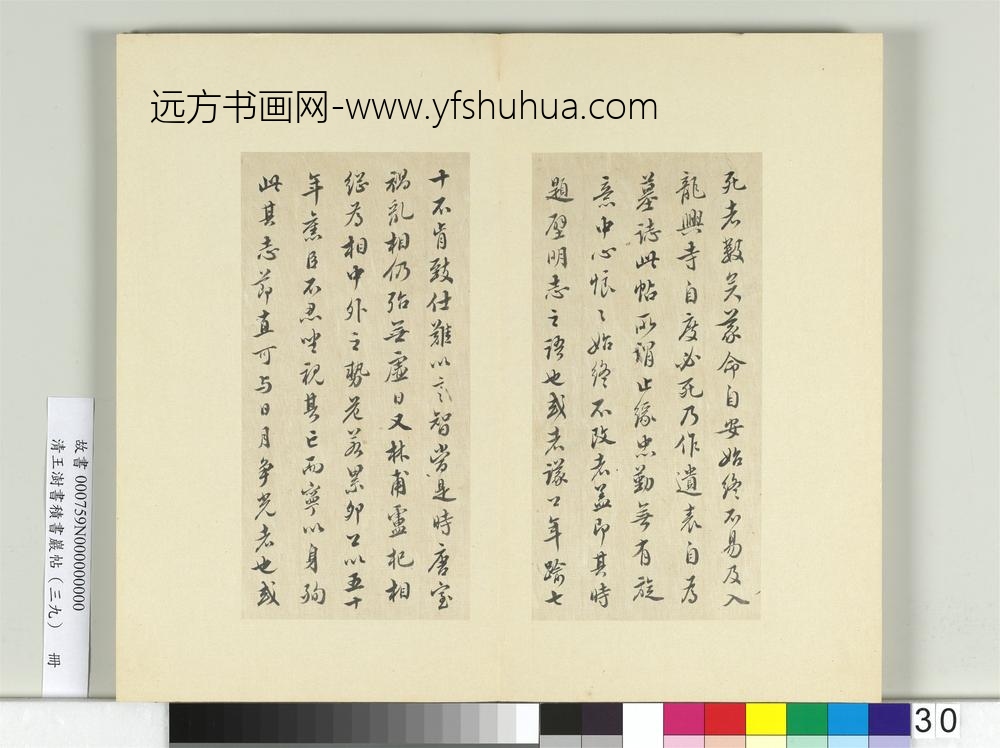 远方书画网-www.yfshuhua.com
死者數矣蒙命自安始終不易及入
龍興寺自度必死乃作遺表自為
墓誌此帖所謂止緣忠勤無有旋
意中心悵〻始終不改者蓋即其時
題壁明志之語也或者議公年踰七
十不肯致仕難以言智當是時唐室
禍亂相仍殆無虛日又林甫盧杞相
繼為相中外之勢危若累卵公以五十
年舊臣不忍坐視其亡而寧以身殉
此其志節直可与日月爭光者也或
故書 000759N000000000
清王澍書積書巖帖(三九) 冊
30